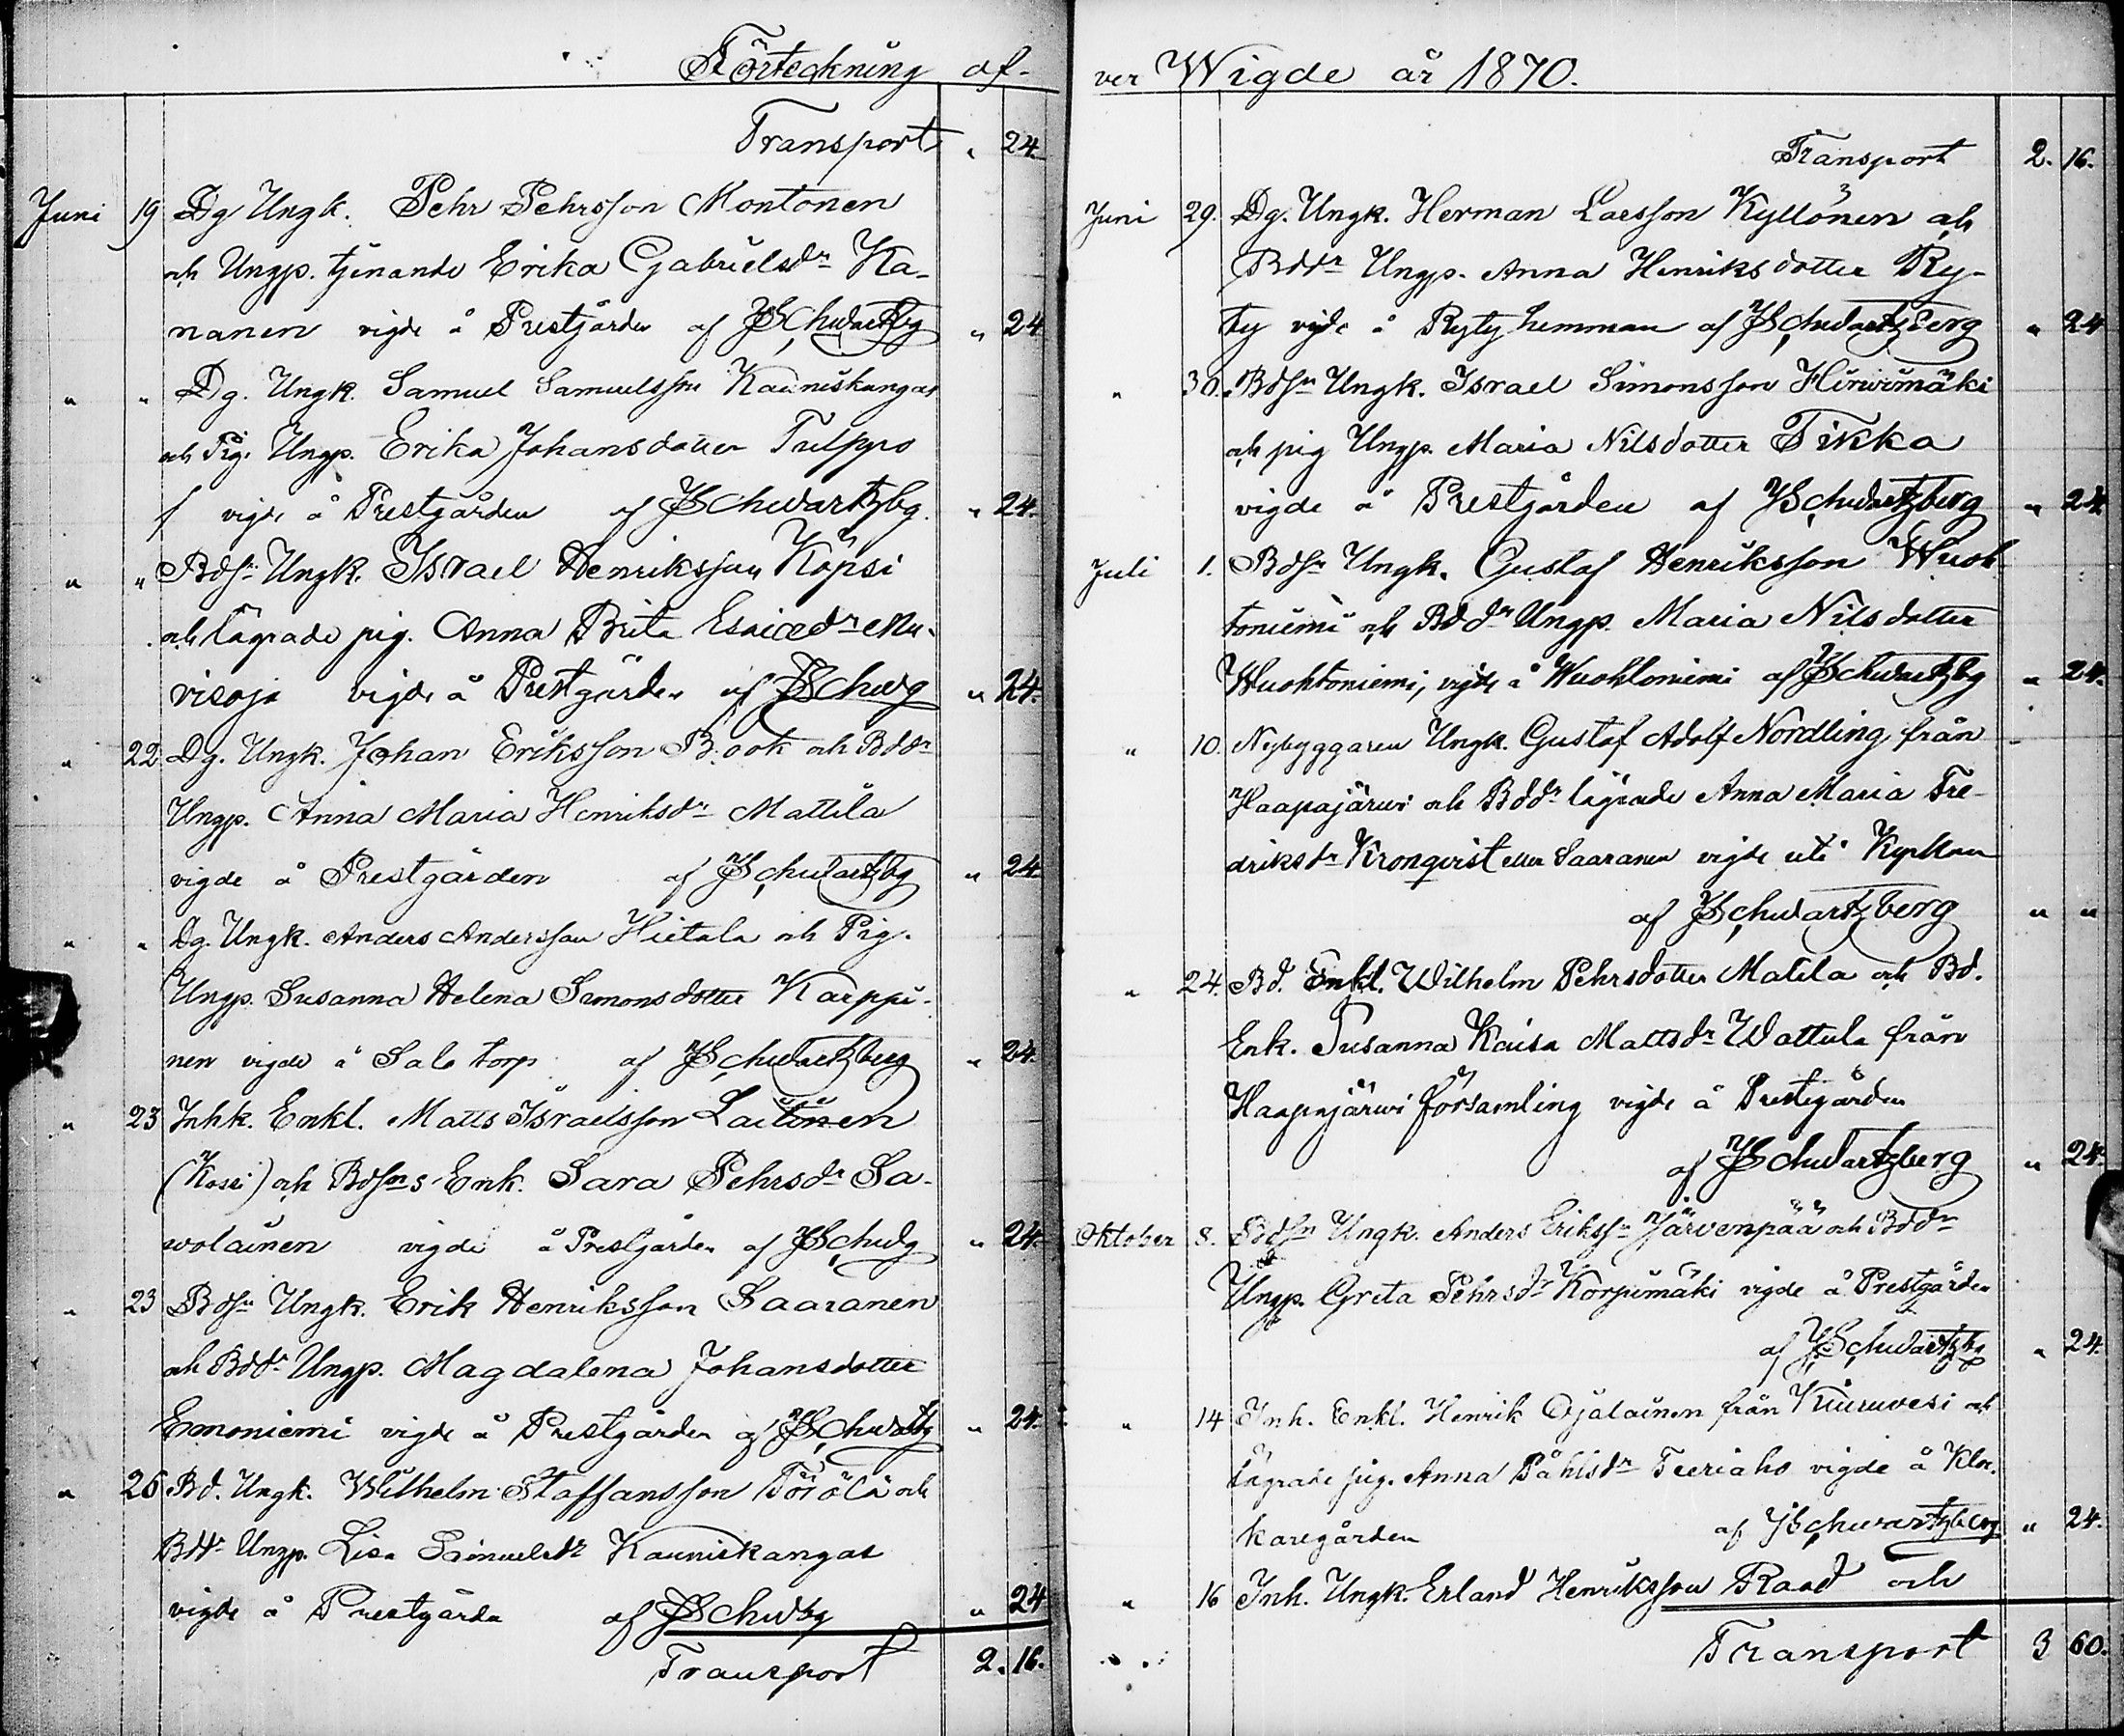 Förteckning af-
Transport " 24.
Juni 19 Dg Ungk. Pehr Pehrsson Montonen
och Ungp. tjenande Erika Gabrielsdr Ka-
nanen vigde å Prestgården af JSchwartzbg " 24
" " Dg. Ungk. Samuel Samuelsson Kauniskangas
och Pig. Ungp. Erika Johansdotter Tulppo
vigde å Prestgården af JSchwartzbg. " 24.
" " Bdsn Ungk. Israel Henriksson Köpsi
och lägrade pig. Anna Brita Esaiædr
visoja vigde å Prestgården af JSchwg " 24.
" 22 Dg. Ungk. Johan Eriksson Book och Bddr
Ungp. Anna Maria Henriksdr Mattila
vigde å Prestgården af JSchwartzbg " 24
" " Dg. Ungk. Anders Andersson Hietala och Pig.
Ungp. Susanna Helena Simonsdotter Karppi-
nen vigde å Salo torp af JSchwartzberg " 24.
" 23 Inhk. Enkl. Matts Israelsson Laitinen
(Kosi) och Bdsns Enk. Sara Pehrsdr Sa-
wolainen vigde å Prestgården af JSchwg " 24.
" 23 Bdsn Ungk. Erik Henriksson Saaranen
och Bddr Ungp. Magdalena Johansdotter
Emoniemi vigde å Prestgården af JSchwartzbg " 24.
" 26 Bd. Ungk. Wilhelm Staffansson Törölä och
Bddr Ungp. Lisa Samuelsdr Kauniskangas
vigde å Prestgården af JSchwbg " 24
Transport 2. 16.
ver Wigde år 1870.
Transport 2. 16.
Juni 29. Dg. Ungk. Herman Larsson Kyllönen och
Bddr Ungp. Anna Henriksdotter Ry-
ty vigde å Ryty hemman af JSchwartzberg " 24
" 30. Bdsn Ungk. Israel Simonsson Hirwimäki
och pig Ungp. Maria Nilsdotter Tikka
vigde å Prestgården af JSchwartzberg " 24.
Juli 1. Bdsn Ungk. Gustaf Henriksson Wuoh
toniemi och Bddr Ungp. Maria Nilsdotter
Wuohtoniemi, vigde å Wuohtoniemi af JSchwartzbg " 24.
" 10. Nybyggaren Ungk. Gustaf Adolf Nordling från
Haapajärwi och Bddr lägrade Anna Maria Fre-
driksdr Kronqvist eller Saaranen vigde uti Kyrkan
af JSchwartzberg " "
" 24. Bd. Enkl. Wilhelm Pehrsdotter Matila och Bd.
Enk. Susanna Kaisa Mattsdr Wattula från
Haapajärwi församling vigde å Prestegården
af JSchwartzberg " 24.
Oktober 8. Bdsn Ungk. Anders Erikssn Järvenpää och Bddr
Ungp. Greta Pehrsdr Korpimäki vigde å Prestgården
af JSchwartzbg " 24.
" 14 Inh. Enkl. Henrik Ojalainen från Kiuruvesi och
lägrade pig. Anna Påhlsdr Teeriaho vigde å Kloc-
karegården af JSchwartzberg " 24.
" 16 Inh. Ungk. Erland Henriksson Raad och
Transport 3 60.